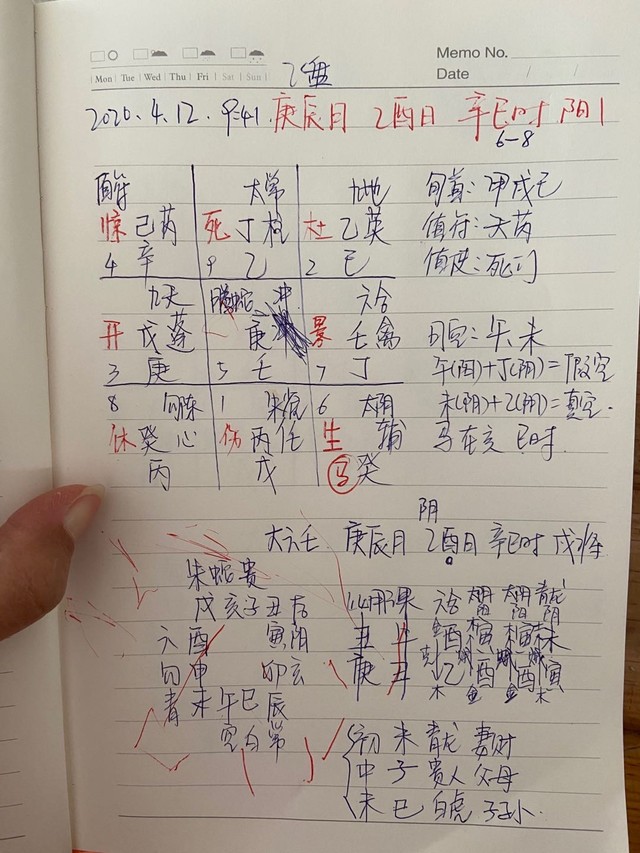 Memo No.
Mon Tue Wed Thu Fri Sat Sun
Date / /
乙盘
2020.4.12. 9:41. 庚辰月 乙酉日 辛巳时 阴1
6-8
太常 九地 旬首:甲戌己
惊己芮 死丁柱 杜乙英 值符:天芮
4 辛 9 乙 2 巳 值使:死门
九天 螣蛇 冲 六合
开戊蓬 庚 景壬禽 旬空:午未
3 庚 5 壬 7 丁 午(阳)+丁(阴)=假空
8 勾陈 1 朱雀 6 太阴 未(阴)+乙(阴)=真空.
休癸心 伤丙任 生 辅 马在亥 巳时.
丙 戊 马癸
阴
大六壬 庚辰月 乙酉日 辛巳时 戌将
朱蛇贵
戌亥子丑后
六酉 寅阴
勾申 卯玄
青未午巳辰
空白常
六合 太阴 太阴 青龙
初 未 青龙 妻财
中 子 贵人 父母
末 巳 白虎 子孙.